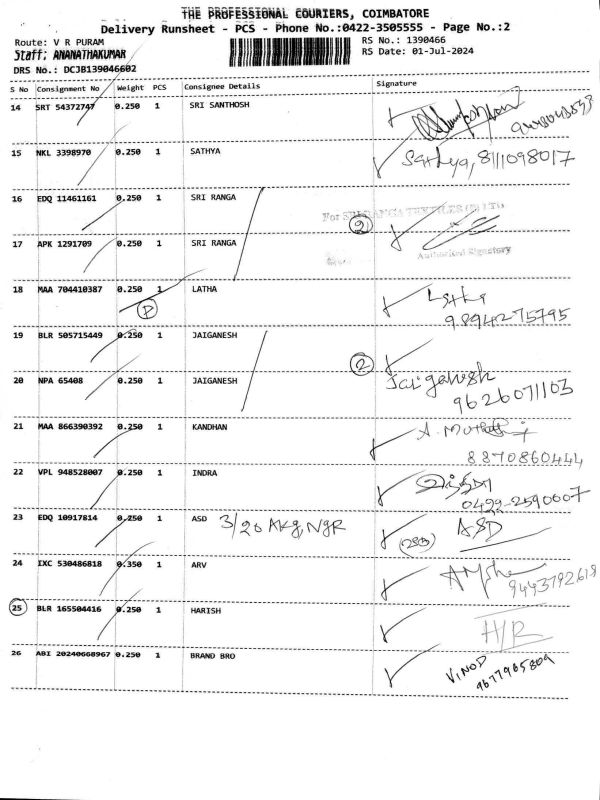 THE PROFESSIONAL COURIERS, COIMBATORE
Delivery Runsheet - PCS - Phone No.:0422-3505555 - Page No.:2
Route: V R PURAM
RS No.: 1390466
Staff: ANANATHAKUMAR
RS Date: 01-Jul-2024
DRS No.: DCJB139046602
S No Consignment No Weight PCS Consignee Details Signature
14 SRT 54372747 0.250 1 SRI SANTHOSH
15 NKL 3398970 0.250 1 SATHYA Sathya, 8111098017
16 EDQ 11461161 0.250 1 SRI RANGA
For SRI RANGA TEXTILES (P) LTD
2
17 APK 1291709 0.250 1 SRI RANGA
Authorised Signatory
18 MAA 704410387 0.250 1 LATHA Latha
P 98942-75795
19 BLR 505715449 0.250 1 JAIGANESH
2
20 NPA 65408 0.250 1 JAIGANESH Jaiganesh
9626071103
21 MAA 866390392 0.250 1 KANDHAN
8870860444
22 VPL 948528007 0.250 1 INDRA இந்திரா
0422-2590007
23 EDQ 10917814 0.250 1 ASD 3/20 AKG, NgR ASD
24 IXC 530486818 0.350 1 ARV
9443792618
25 BLR 165504416 0.250 1 HARISH H/R
26 ABI 20240660967 0.250 1 BRAND BRO VINOD
9677965809